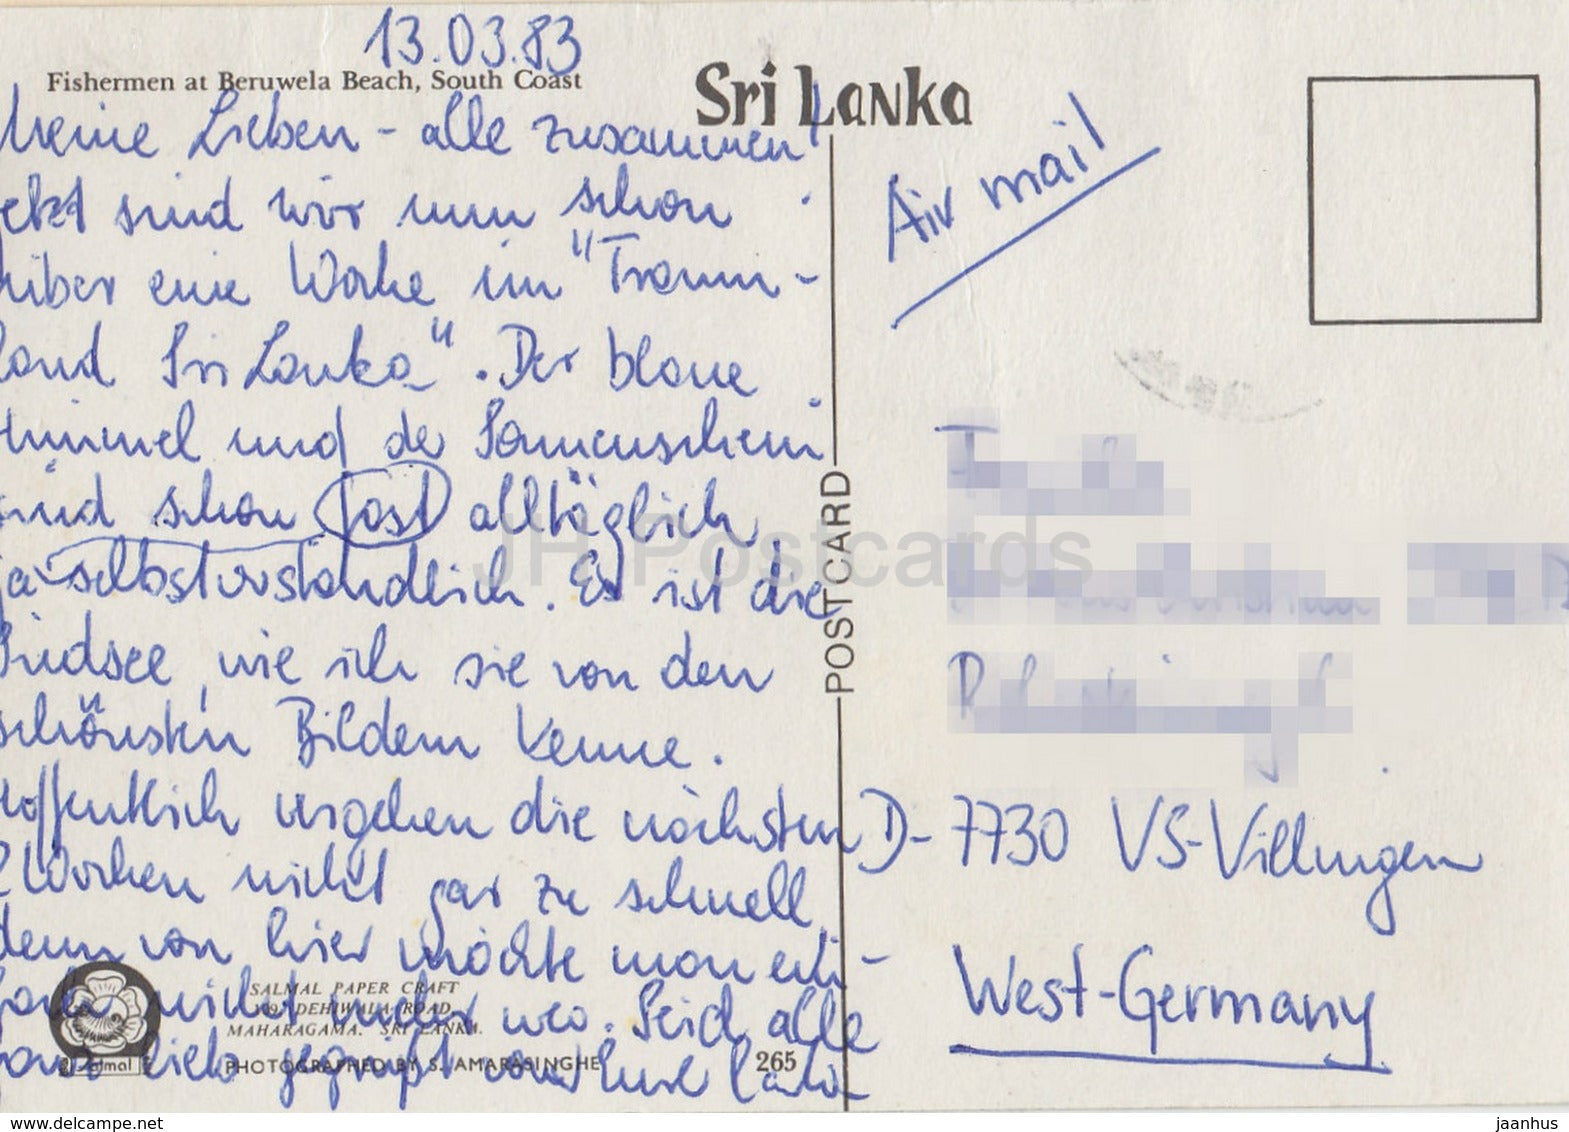 13.03.83
Fishermen at Beruwela Beach, South Coast
Meine Lieben - alle zusammen!
Jetzt sind wir nun schon
über eine Woche im "Traum-
land Sri Lanka". Der blaue
Himmel und der Sonnenschein
sind schon fast alltäglich,
ja selbstverständlich. Es ist die
Südsee, wie ich sie von den
schönsten Bildern kenne.
Hoffentlich vergehen die nächsten
2 Wochen nicht gar zu schnell,
denn von hier möchte man ein-
fach nicht mehr weg. Seid alle
ganz lieb gegrüßt von Eure
Sri Lanka
Air mail
POSTCARD
D-7730 VS-Villingen
West-Germany
SALMAL PAPER CRAFT
DEHIWALA ROAD,
MAHARAGAMA. SRI LANKA.
Salmal
PHOTOGRAPHED BY S. AMARASINGHE
265
JH Postcards
www.delcampe.net
jaanhus